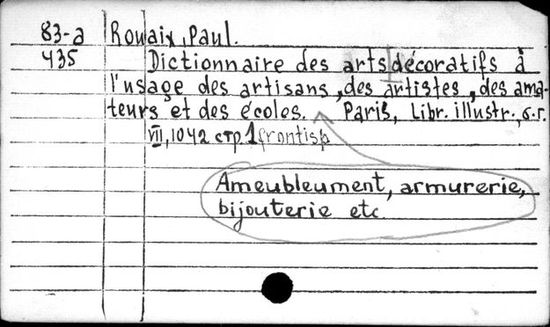 83-а Rouaix, Paul.
435 Dictionnaire des arts décoratifs à
l'usage des artisans, des artistes, des ama-
teurs et des écoles. Paris, Libr. illustr., s.г.
VII, 1042 стр. 1 frontisp
Ameublement, armurerie,
bijouterie etc